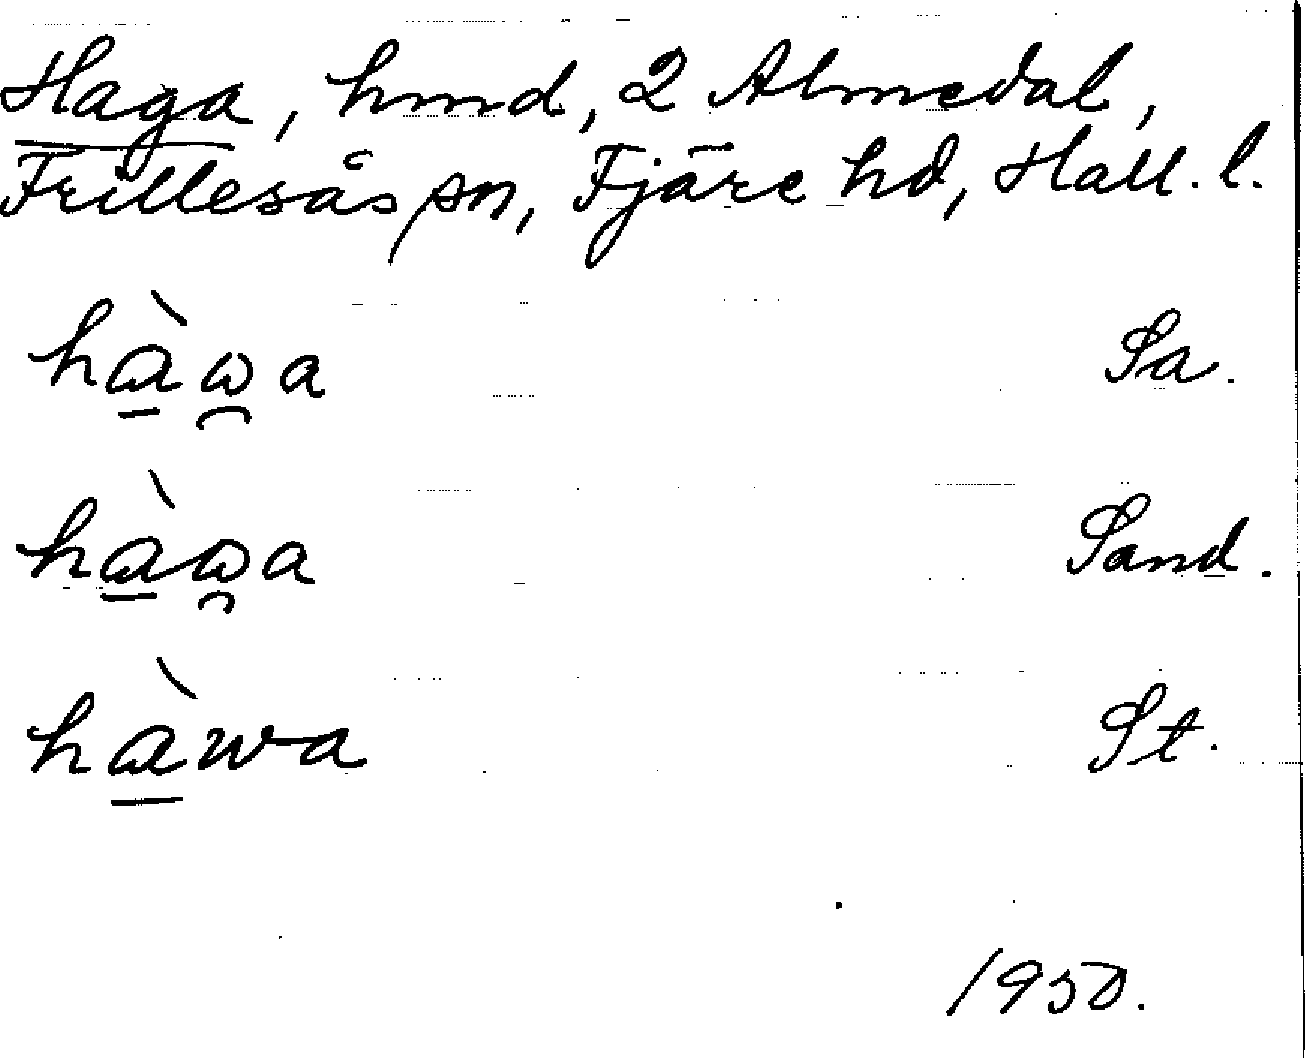 Haga, hmd, 2 Almedal,
Frillesås sn, Fjäre hd, Hall. l.
hàωa Sa.
hàωa Sand.
hàwa St.
1950.